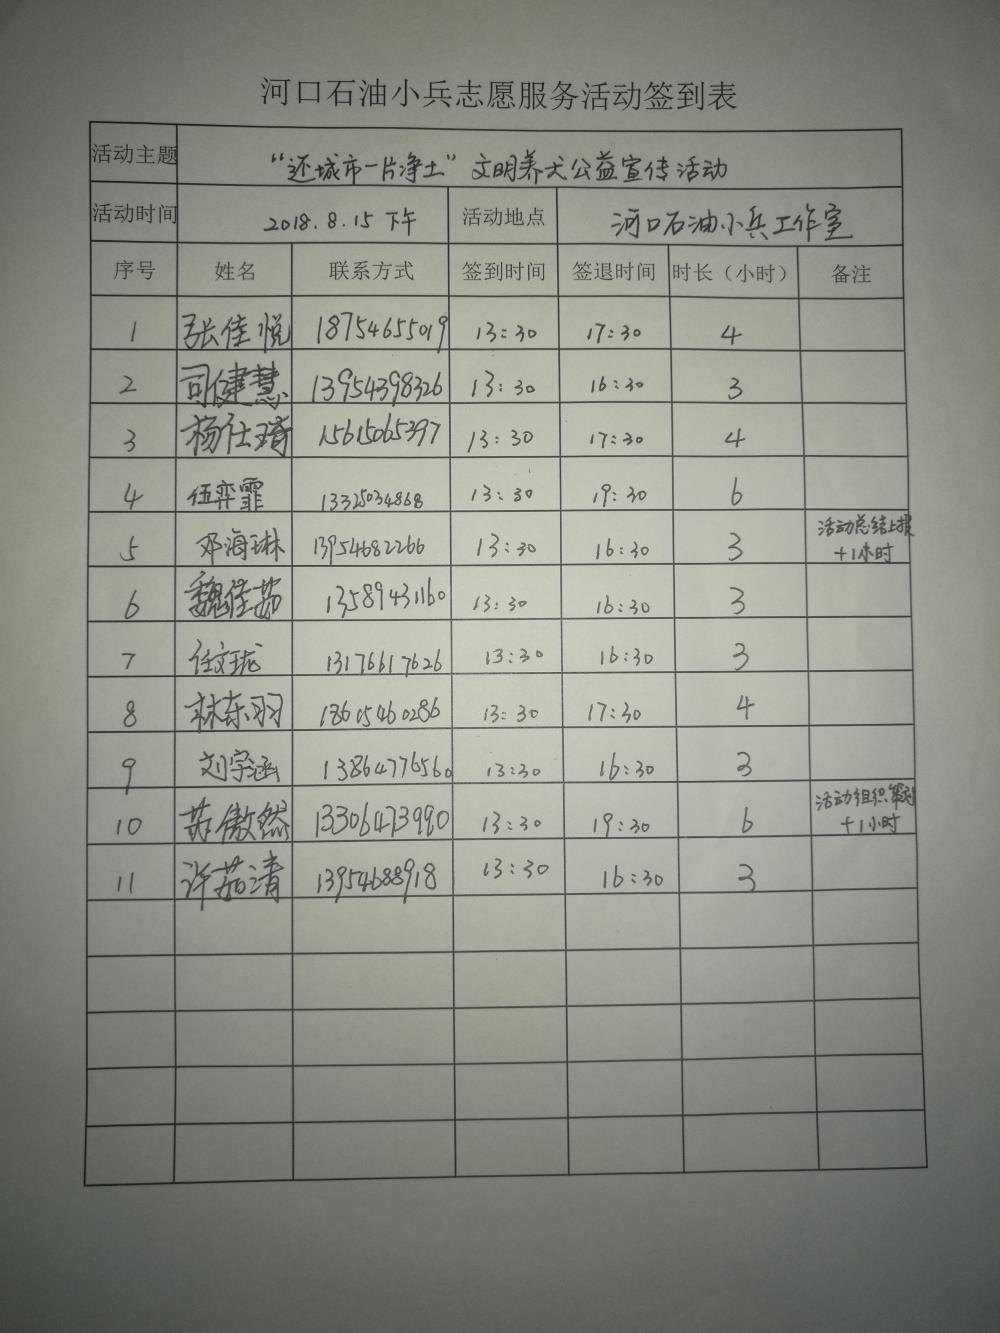 河口石油小兵志愿服务活动签到表
活动主题 “还城市一片净土”文明养犬公益宣传活动
活动时间 2018.8.15 下午 活动地点 河口石油小兵工作室
序号 姓名 联系方式 签到时间 签退时间 时长（小时） 备注
1 张佳悦 18754655019 13:30 17:30 4
2 司健慧 13954398326 13:30 16:30 3
3 杨仕琦 15615065397 13:30 17:30 4
4 伍弈霏 13325034868 13:30 19:30 6
5 邓海琳 13954682266 13:30 16:30 3 活动总结上报
+1小时
6 魏佳茹 13589431160 13:30 16:30 3
7 任文珑 13176617626 13:30 16:30 3
8 林东羽 18605460286 13:30 17:30 4
9 刘宇涵 13864776560 13:30 16:30 3
10 苏傲然 13306473990 13:30 19:30 6 活动组织策划
+1小时
11 许茹清 13954688918 13:30 16:30 3